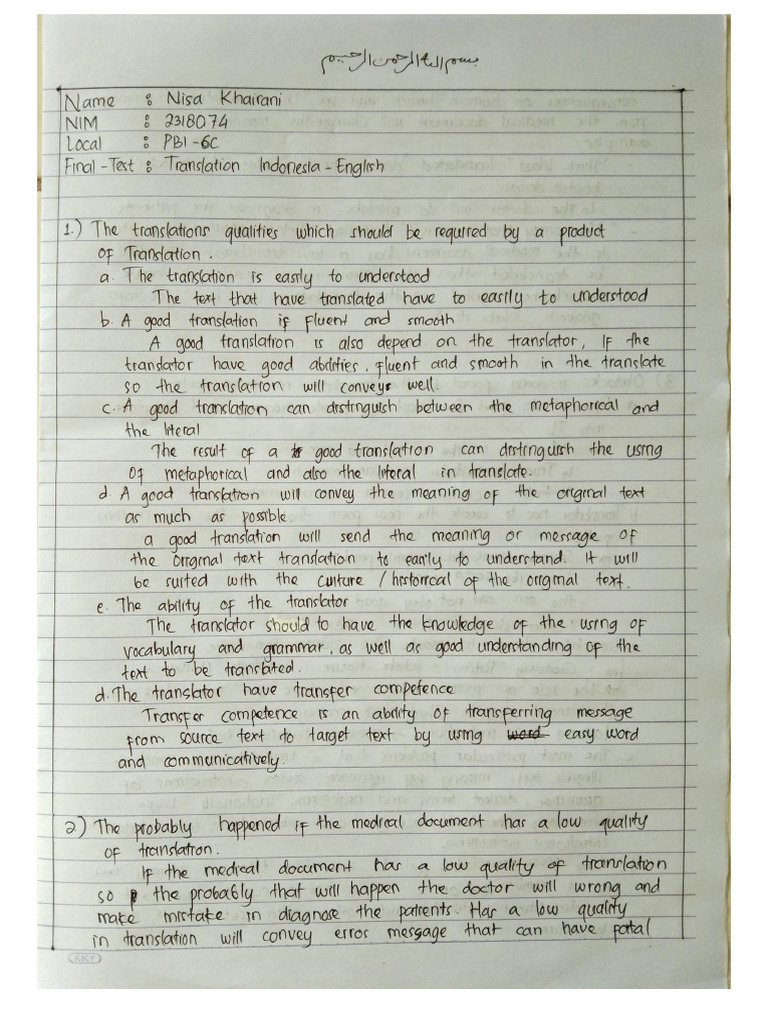 بسم الله الرحمن الرحيم
Name : Nisa Khairani
NIM : 2318074
Local : PBI -6C
Final -Test : Translation Indonesia - English
1.) The translations qualities which should be required by a product
of Translation.
a. The translation is easily to understood
The text that have translated have to easily to understood
b. A good translation is fluent and smooth
A good translation is also depend on the translator, if the
translator have good abilities, fluent and smooth in the translate
so the translation will conveys well.
c. A good translation can distinguish between the metaphorical and
the literal
The result of a good translation can distinguish the using
of metaphorical and also the literal in translate.
d. A good translation will convey the meaning of the original text
as much as possible
a good translation will send the meaning or message of
the original text translation to early to understand. It will
be suited with the culture / historical of the original text.
e. The ability of the translator
The translator should to have the knowledge of the using of
vocabulary and grammar, as well as good understanding of the
text to be translated.
d. The translator have transfer competence
Transfer competence is an ability of transferring message
from source text to target text by using word easy word
and communicatively.
2) The probably happened if the medical document has a low quality
of translation.
If the medical document has a low quality of translation
so the probably that will happen the doctor will wrong and
make mistake in diagnose the patients. Has a low quality
in translation will convey erros message that can have fatal
KKY